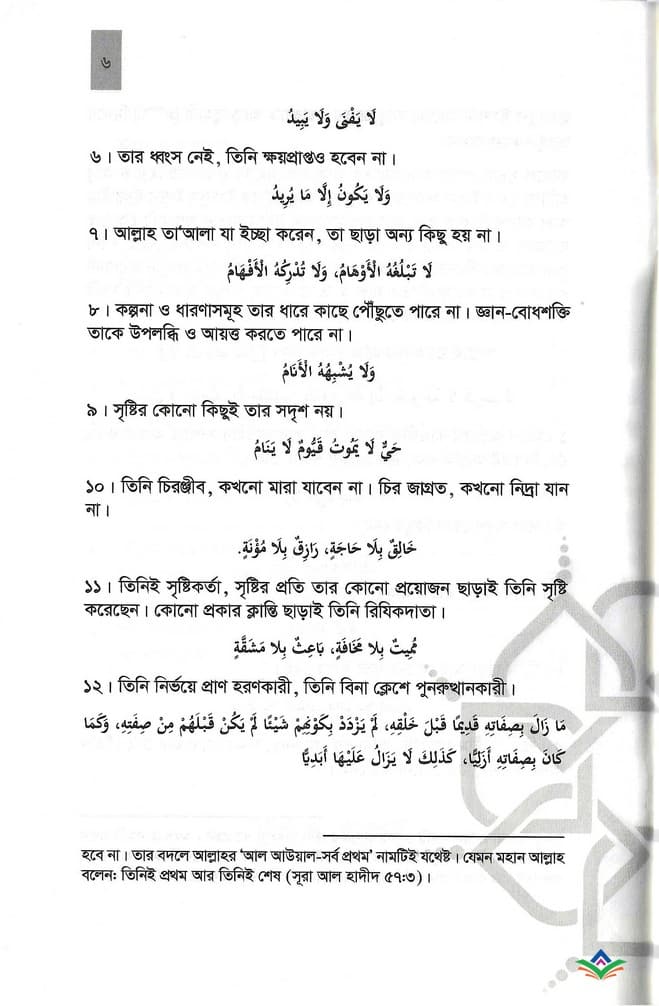 ৬
لَا يَفْنَى وَلَا يَبِيدُ
৬। তার ধ্বংস নেই, তিনি ক্ষয়প্রাপ্তও হবেন না।
وَلَا يَكُونُ إِلَّا مَا يُرِيدُ
৭। আল্লাহ তা‘আলা যা ইচ্ছা করেন, তা ছাড়া অন্য কিছু হয় না।
لَا تَبْلُغُهُ الْأَوْهَامُ، وَلَا تُدْرِكُهُ الْأَفْهَامُ
৮। কল্পনা ও ধারণাসমূহ তার ধারে কাছে পৌঁছুতে পারে না। জ্ঞান-বোধশক্তি
তাকে উপলব্ধি ও আয়ত্ত করতে পারে না।
وَلَا يُشْبِهُهُ الْأَنَامُ
৯। সৃষ্টির কোনো কিছুই তার সদৃশ নয়।
حَيٌّ لَا يَمُوتُ قَيُّومٌ لَا يَنَامُ
১০। তিনি চিরঞ্জীব, কখনো মারা যাবেন না। চির জাগ্রত, কখনো নিদ্রা যান
না।
خَالِقٌ بِلَا حَاجَةٍ، رَازِقٌ بِلَا مُؤْنَةٍ.
১১। তিনিই সৃষ্টিকর্তা, সৃষ্টির প্রতি তার কোনো প্রয়োজন ছাড়াই তিনি সৃষ্টি
করেছেন। কোনো প্রকার ক্লান্তি ছাড়াই তিনি রিযিকদাতা।
مُمِيتٌ بِلَا مَخَافَةٍ، بَاعِثٌ بِلَا مَشَقَّةٍ
১২। তিনি নির্ভয়ে প্রাণ হরণকারী, তিনি বিনা ক্লেশে পুনরুত্থানকারী।
مَا زَالَ بِصِفَاتِهِ قَدِيمًا قَبْلَ خَلْقِهِ، لَمْ يَزْدَدْ بِكَوْنِهِمْ شَيْئًا لَمْ يَكُنْ قَبْلَهُمْ مِنْ صِفَتِهِ، وَكَمَا
كَانَ بِصِفَاتِهِ أَزَلِيًّا، كَذَلِكَ لَا يَزَالُ عَلَيْهَا أَبَدِيًّا
হবে না। তার বদলে আল্লাহর ‘আল আউয়াল-সর্ব প্রথম’ নামটিই যথেষ্ট। যেমন মহান আল্লাহ
বলেন: তিনিই প্রথম আর তিনিই শেষ (সূরা আল হাদীদ ৫৭:৩)।